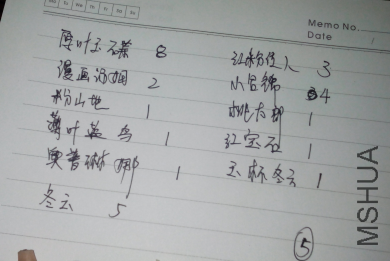 Mo Tu We Th Fr Sa Su
Memo No.
Date
厚叶玉石 8
漫画 2
粉山地 1
薄叶蓝鸟 1
奥普琳娜 1
冬云 5
红粉佳人 3
小宫锦 4
桃太郎 1
红宝石 1
玉杯冬云 1
5
MSHUA